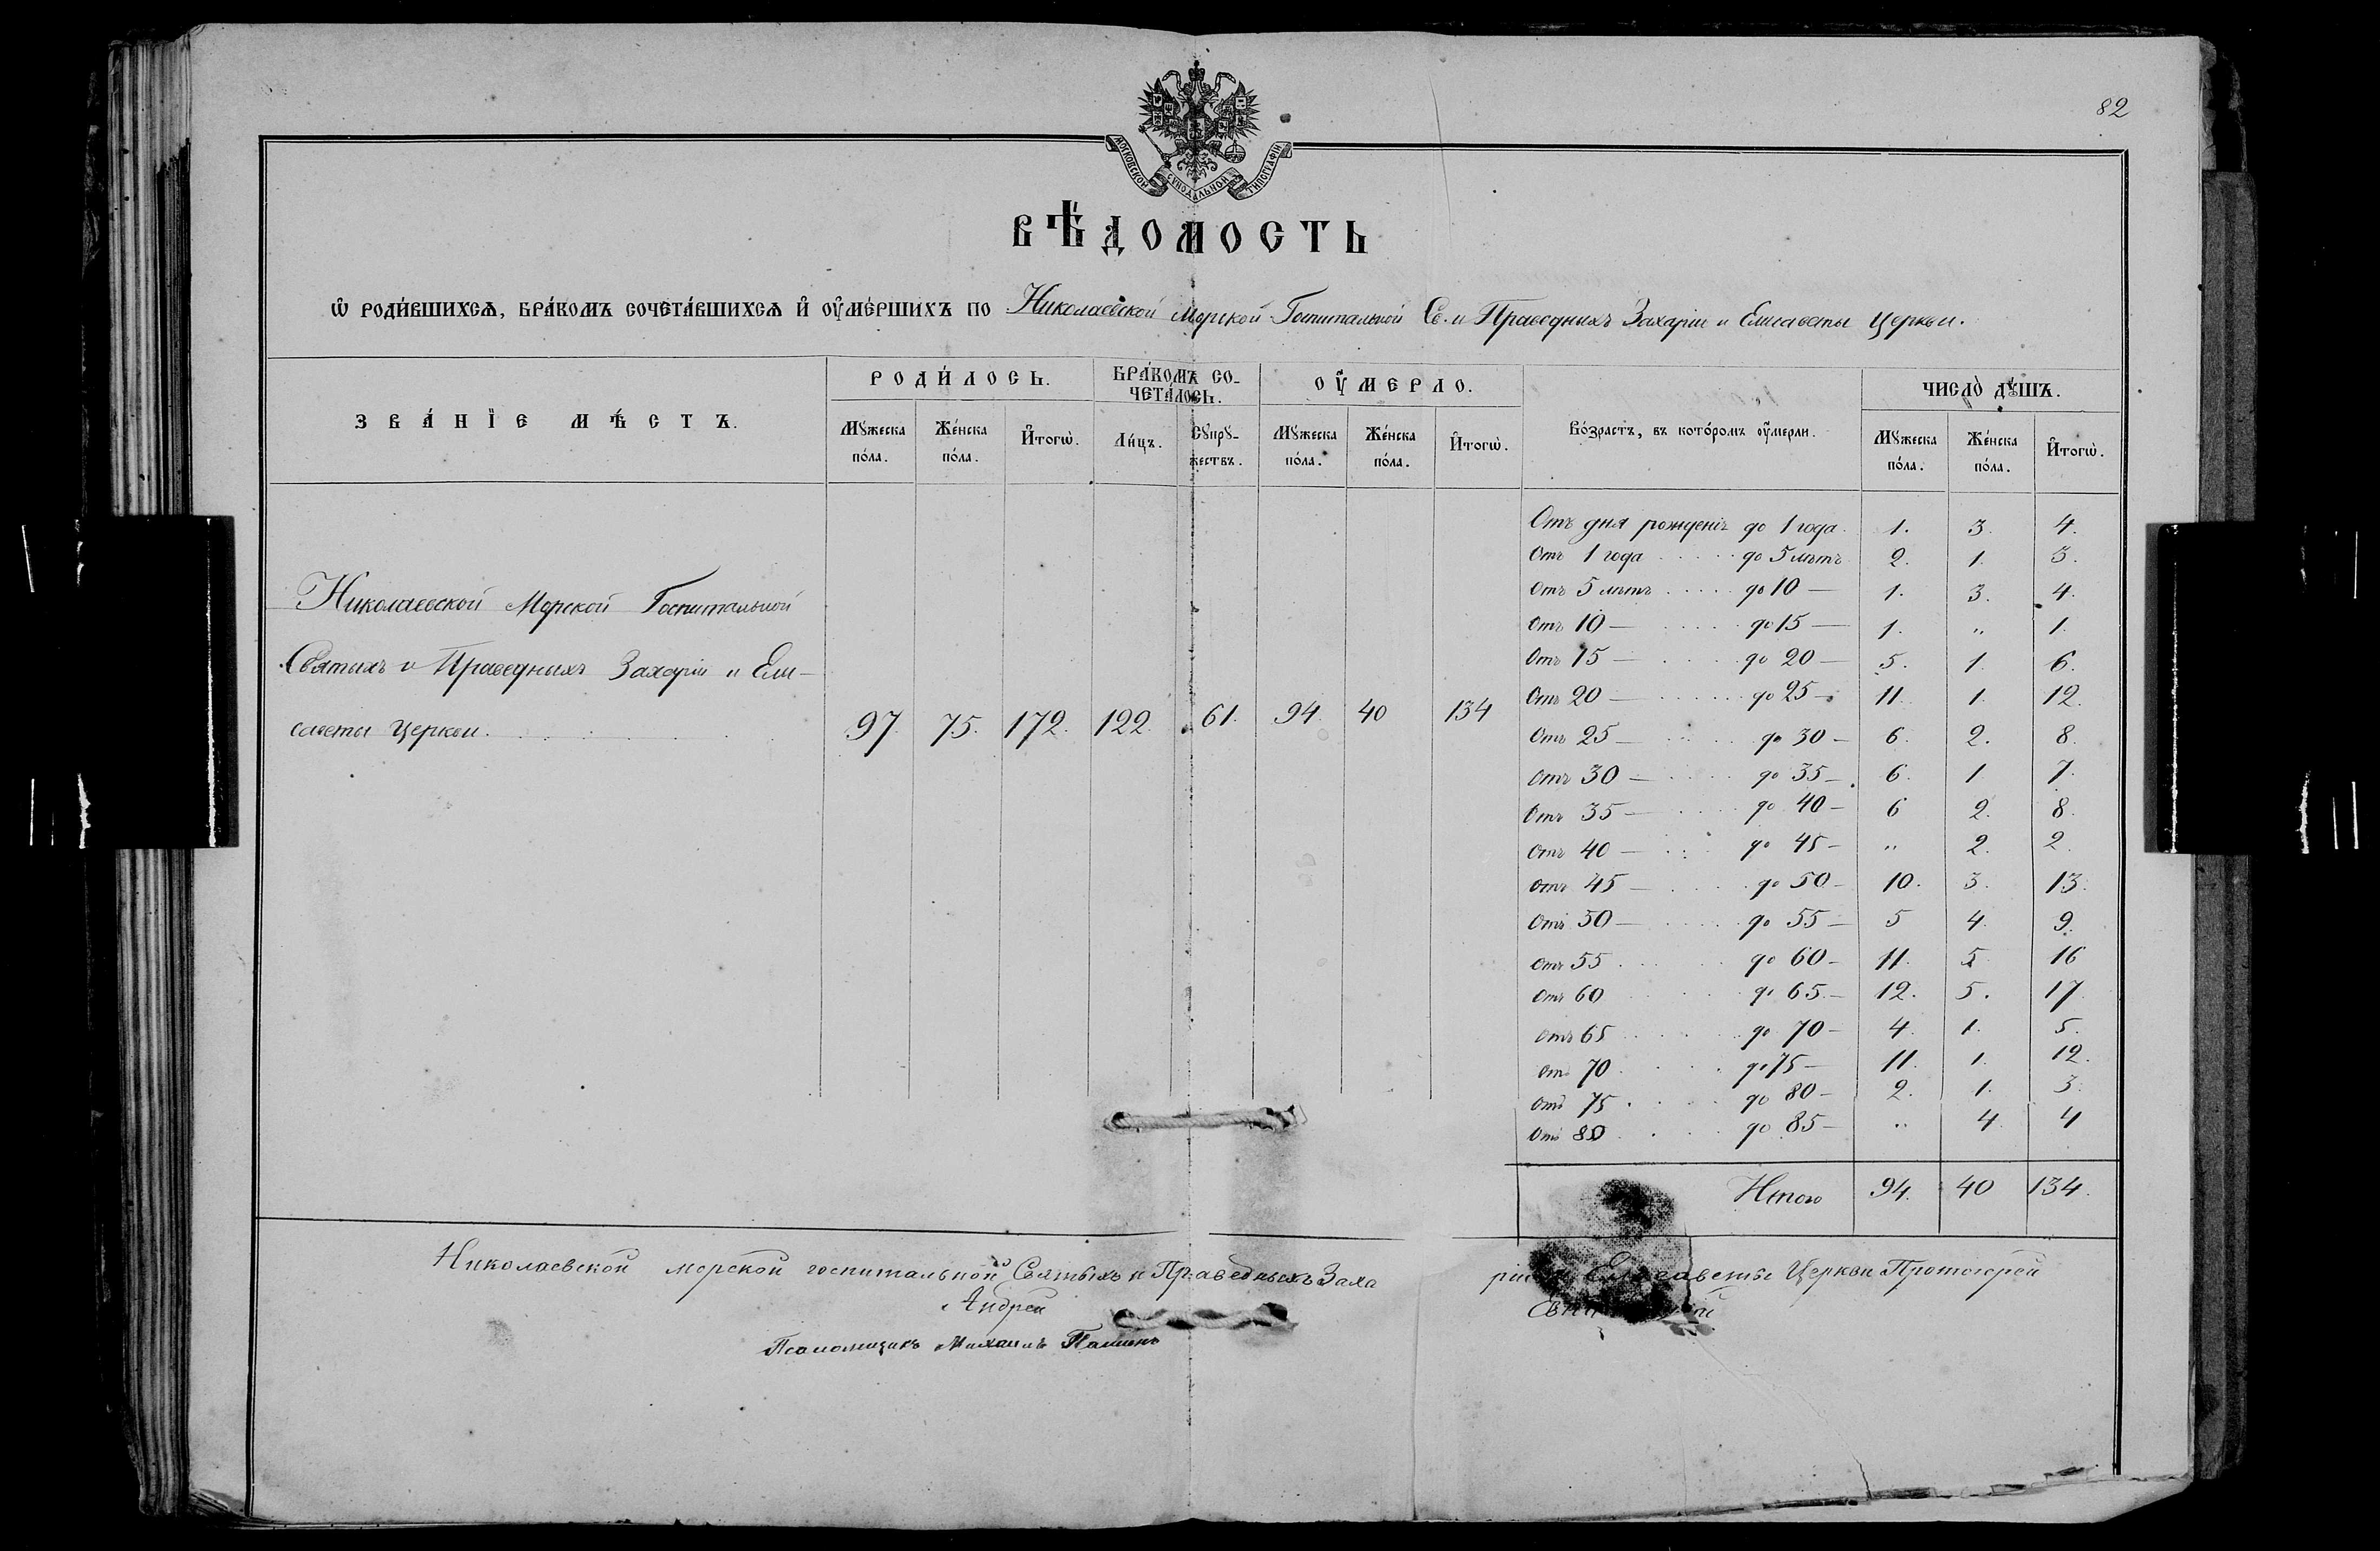 82
МОСКОВСКОЙ СѴНОДАЛЬНОЙ ТИПОГРАФІИ
ВѢ́ДОМОСТЬ
Ѡ҆ РОДИ́ВШИХСѦ, БРА́КОМЪ СОЧЕТА́ВШИХСѦ И҆ ОУ҆МЕ́РШИХЪ ПО Николаевской Морской Госпитальной Св. и Праведныхъ Захарiи и Елисаветы Церкви.
ЗВА́НЇЕ МѢ́СТЪ. РОДИ́ЛОСЬ. БРА́КОМЪ СО- ОУ҆́МЕРЛО. Во́зрастъ, въ кото́ромъ оу҆́мерли. ЧИСЛО̀ ДꙊ́ШЪ.
ЧЕТА́ЛОСЬ.
Мꙋ́жеска по́ла. Же́нска по́ла. И҆тогѡ̀. Ли́цъ. Сꙋпрꙋ́жествъ. Мꙋ́жеска по́ла. Же́нска по́ла. И҆тогѡ̀. Мꙋ́жеска по́ла. Же́нска по́ла. И҆тогѡ̀.
Николаевской Морской Госпитальной
Святыхъ и Праведныхъ Захарiи и Ели-
саветы Церкви. 97. 75. 172. 122. 61. 94. 40 134
Отъ дня рожденiя до 1 года. 1. 3. 4.
Отъ 1 года до 5 лѣтъ 2. 1. 3.
Отъ 5 лѣтъ до 10 — 1. 3. 4.
Отъ 10 — до 15 — 1. „ 1.
Отъ 15 — до 20 — 5. 1. 6.
Отъ 20 — до 25 — 11. 1. 12.
Отъ 25 — до 30 — 6. 2. 8.
Отъ 30 — до 35 — 6. 1 7.
Отъ 35 — до 40 — 6 2. 8.
Отъ 40 — до 45 — „ 2. 2.
Отъ 45 — до 50 — 10. 3. 13.
Отъ 50 — до 55 — 5 4. 9.
Отъ 55 до 60 — 11. 5 16
Отъ 60 до 65 — 12. 5. 17
Отъ 65 до 70 — 4. 1. 5.
Отъ 70 до 75 — 11. 1. 12.
Отъ 75 до 80 — 2. 1. 3.
Отъ 80 до 85 — „ 4. 4
Итого 94. 40 134.
Николаевской морской госпитальной Святыхъ и Праведныхъ Захарiи и Елисаветы Церкви Протоiерей
Андрей
Псаломщикъ Михаилъ